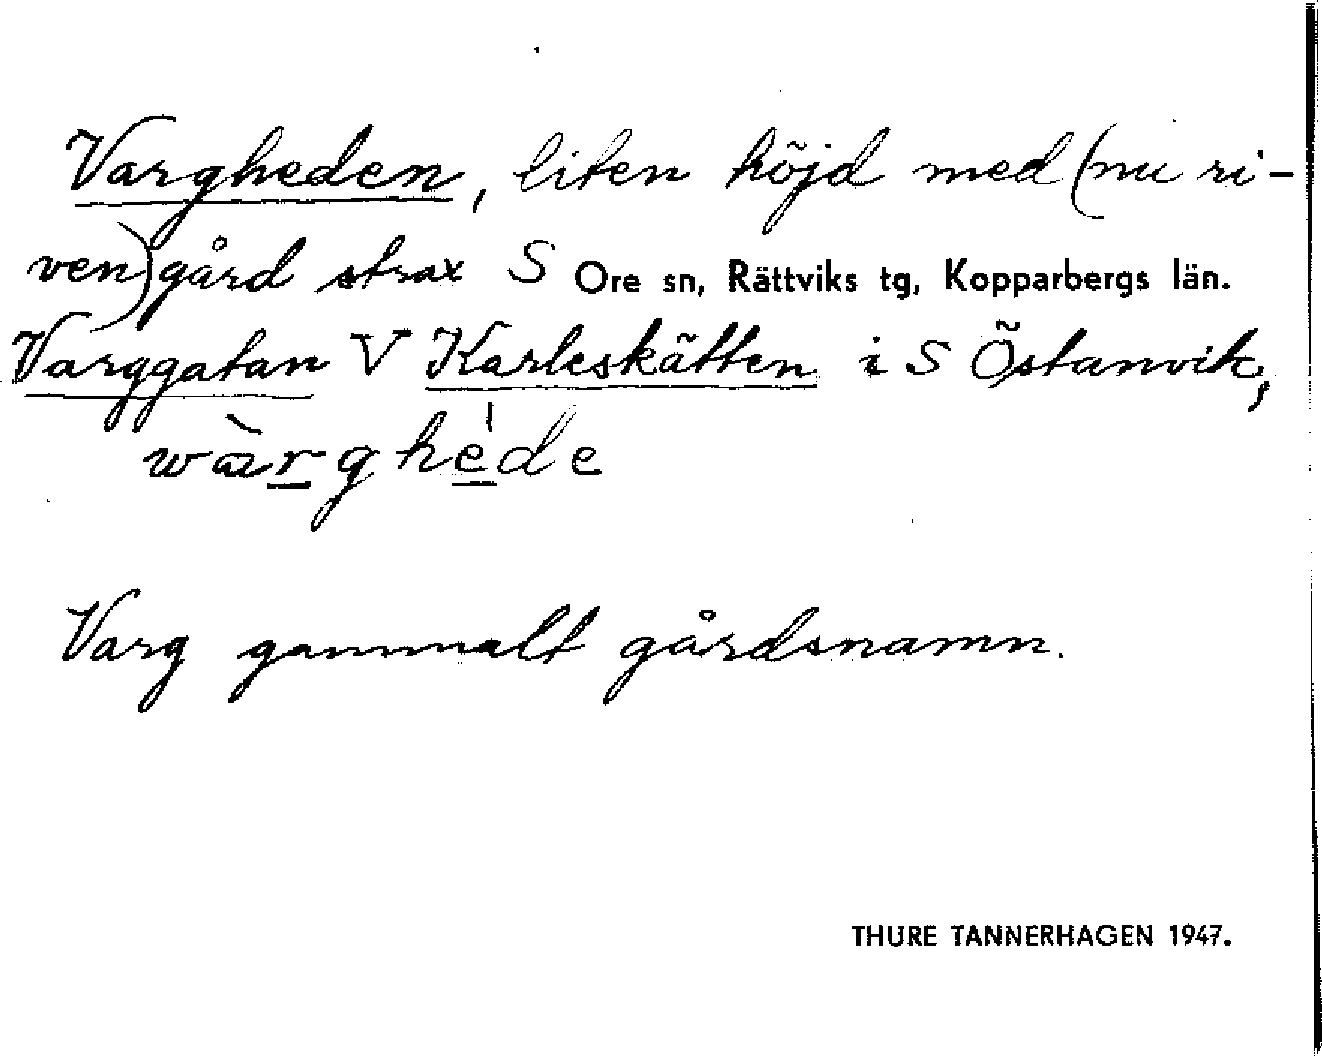 Vargheden, liten höjd med (nu ri-
ven) gård strax S Ore sn, Rättviks tg, Kopparbergs län.
Varggatan V Karleskätten i S Östanvik,
wàrghède
Varg gammalt gårdsnamn.
THURE TANNERHAGEN 1947.